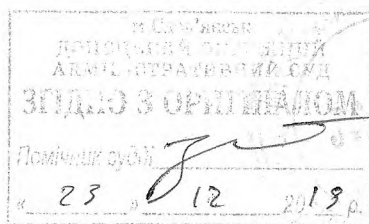 м. Слов'янськ
ДОНЕЦЬКИЙ ОКРУЖНИЙ
АДМІНІСТРАТИВНИЙ СУД
ЗГІДНО З ОРИГІНАЛОМ
Помічник судді
« 23 » 12 2019 р.